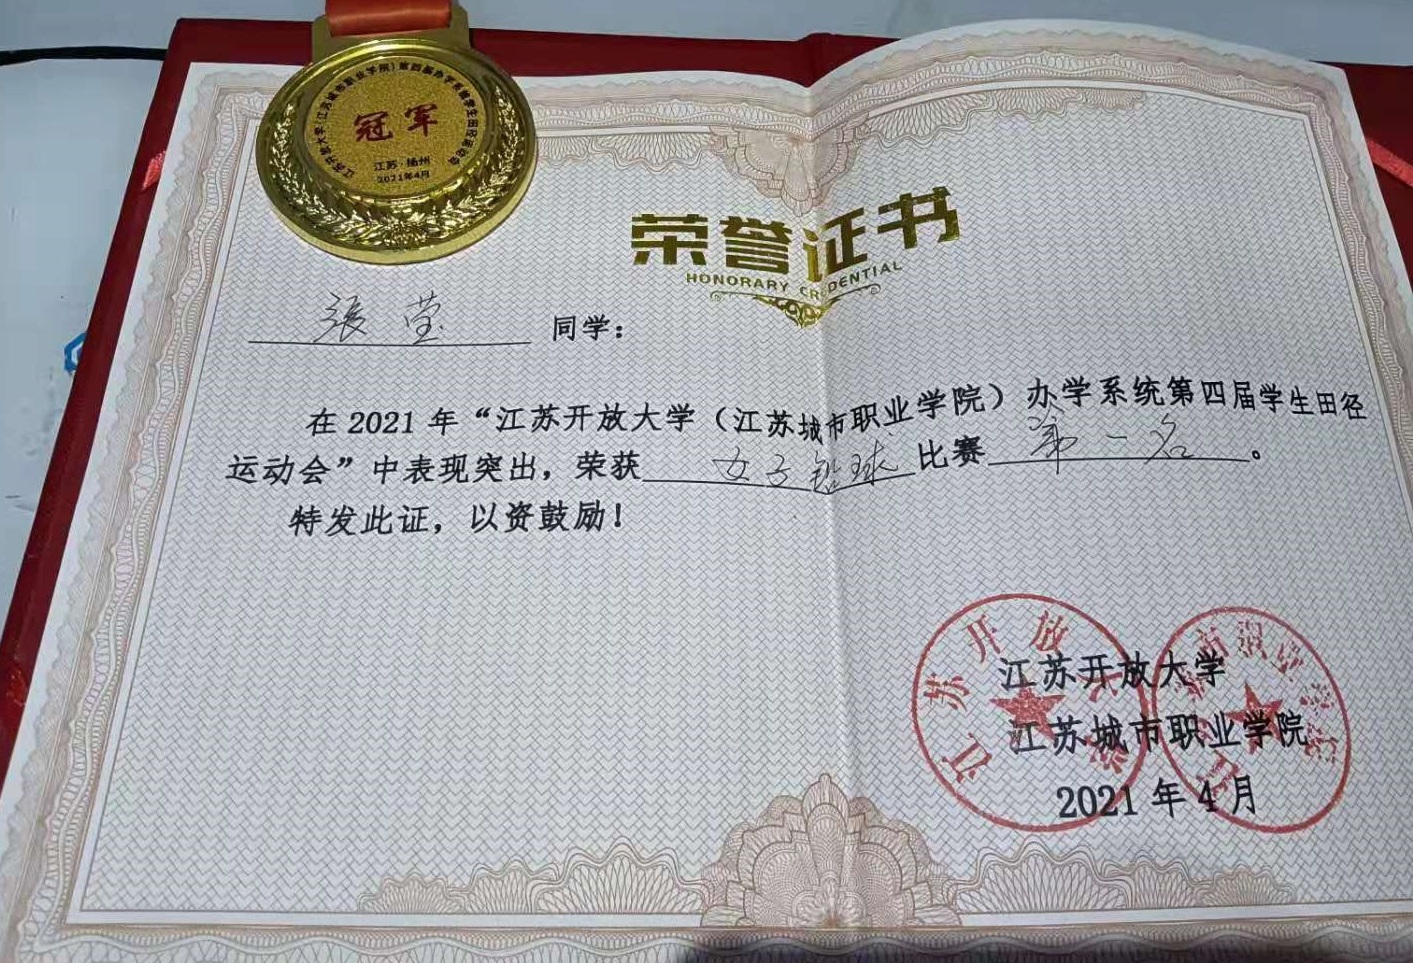 江苏开放大学(江苏城市职业学院)第四届办学系统学生田径运动会
冠军
江苏·扬州
2021年4月
荣誉证书
HONORARY CREDENTIAL
張莹 同学：
在 2021 年“江苏开放大学（江苏城市职业学院）办学系统第四届学生田径
运动会”中表现突出，荣获 女子铅球 比赛 第一名 。
特发此证，以资鼓励！
江苏开放大学
江苏城市职业学院
2021 年 4 月
江苏开放大学
江苏城市职业学院